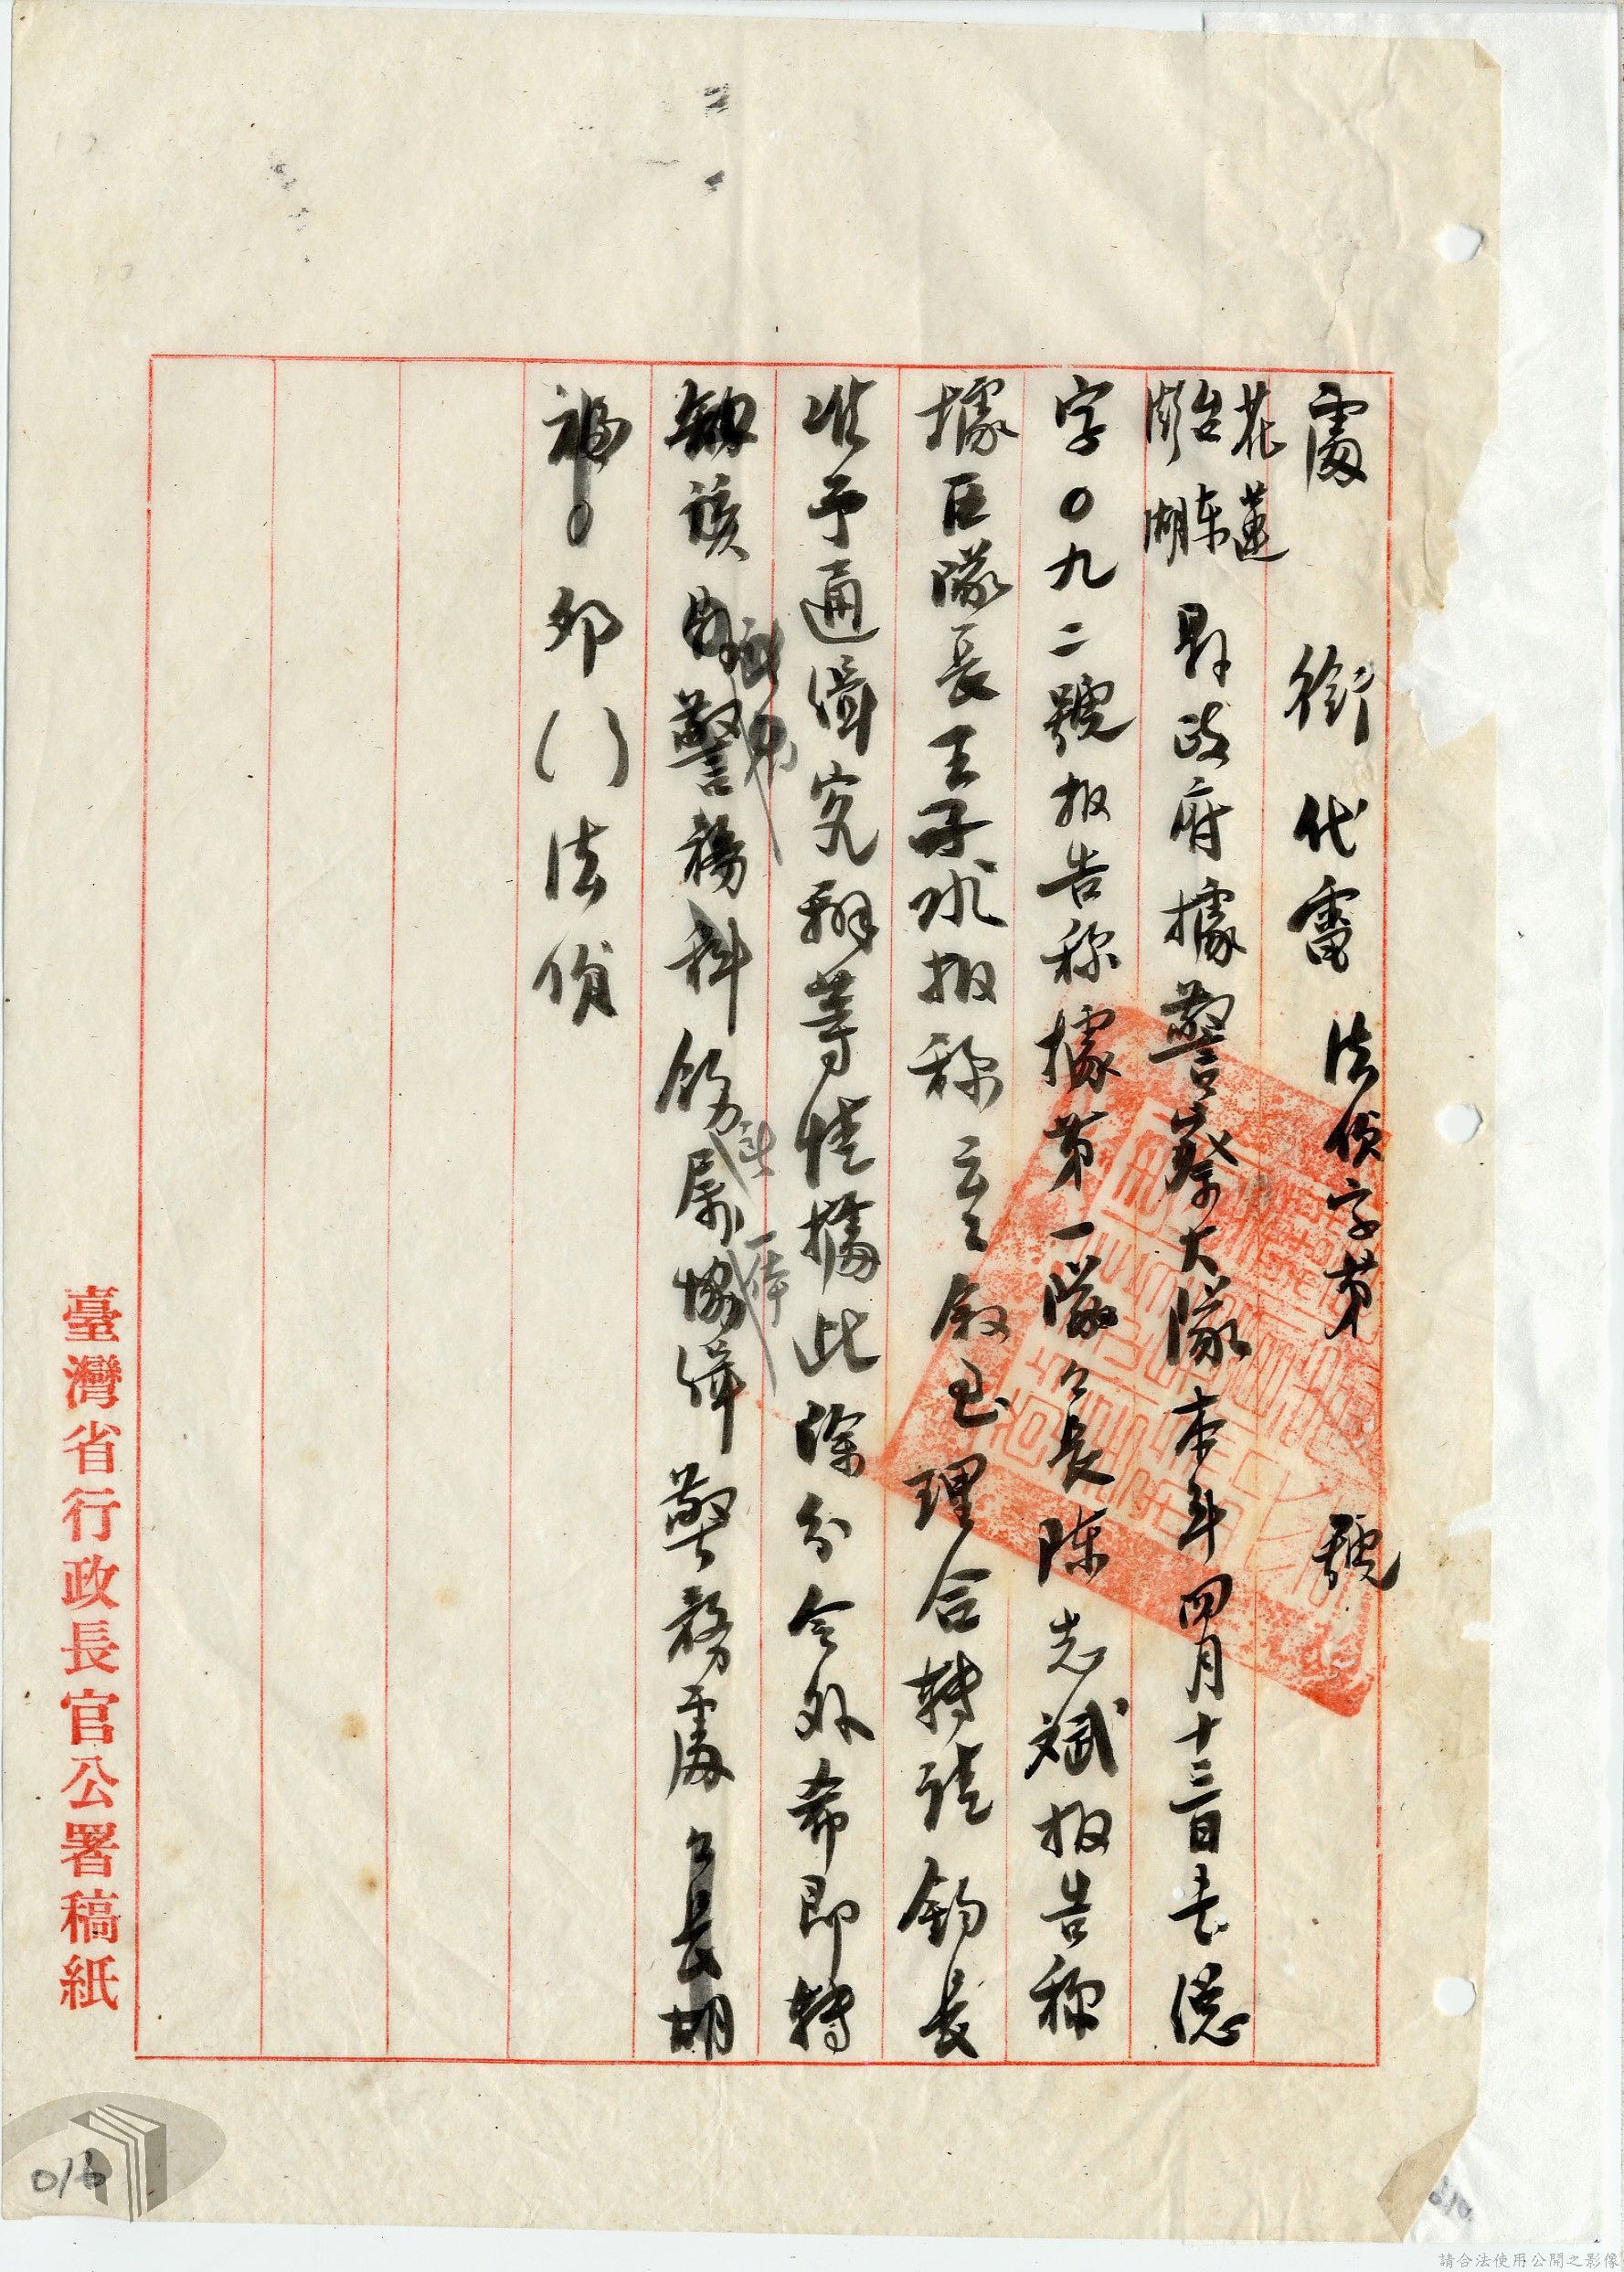 處銜代電 法偵字第 號
花蓮
台東
澎湖
縣政府據警察大隊本年四月十三日
字〇九二號報告称據第一隊々長陳志斌報告称
據區隊長王子水報称云云敘至理合轉請鈞長
准予通緝究辦等情據此除分令外希即轉
飭該縣警務科飭屬協緝警務處々長胡
福〇卯()法偵
一体
臺灣省行政長官公署稿紙
016
請合法使用公開之影像